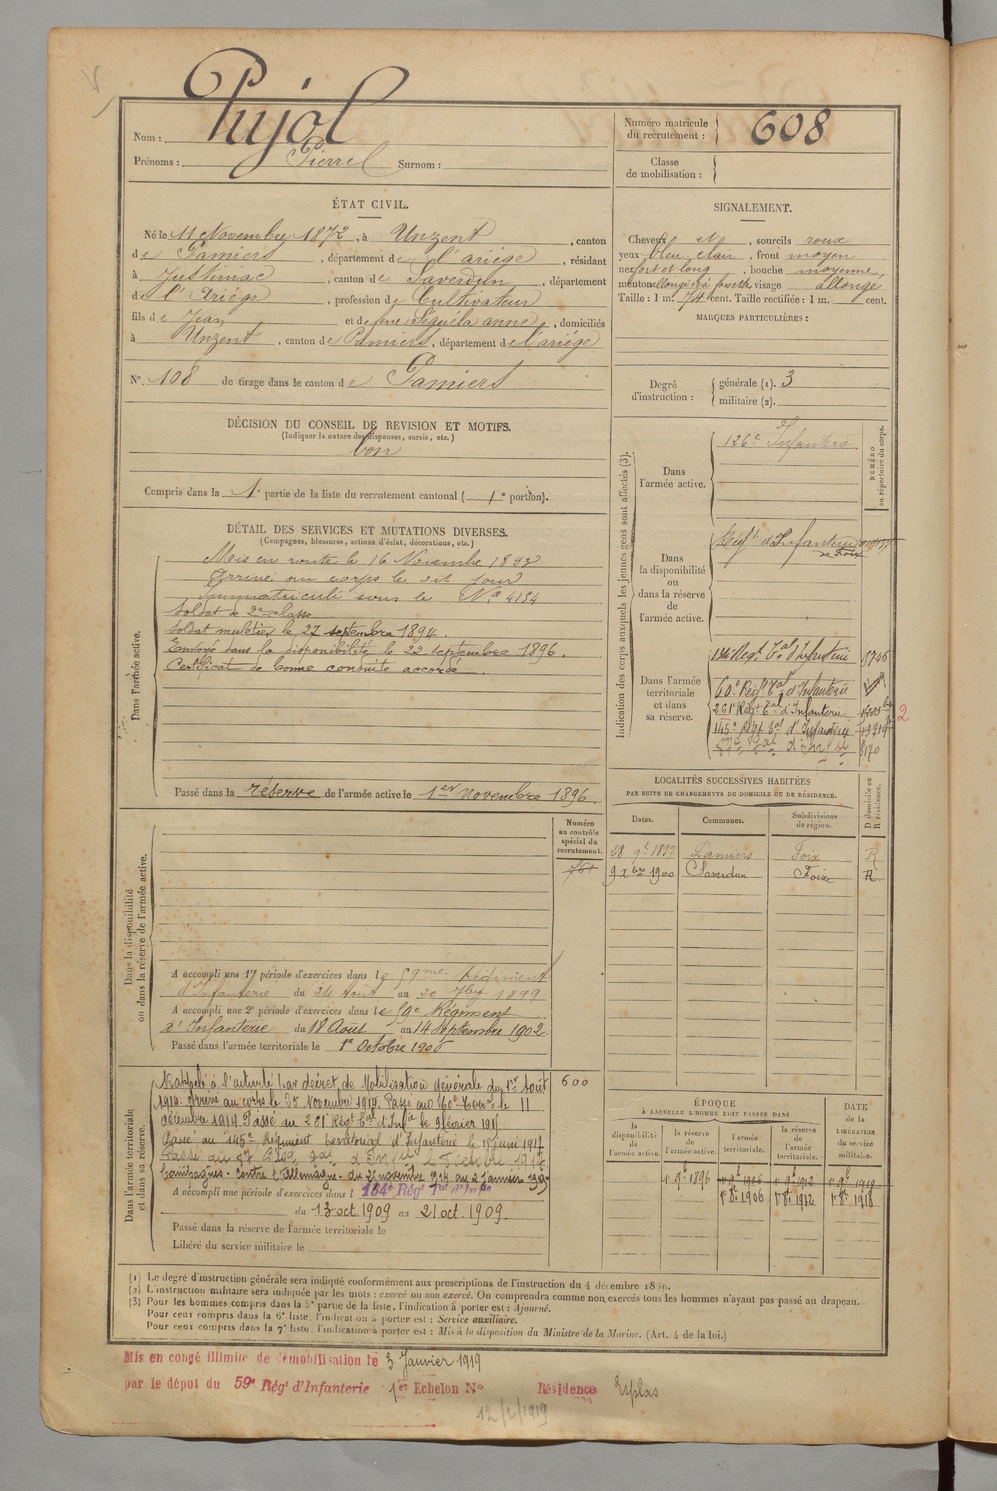 Nom : Pujol
Prénoms : Pierre Surnom :
Numéro matricule du recrutement : 608
Classe de mobilisation :
ÉTAT CIVIL.
Né le 11 Novembre 1872, à Unzent, canton
de Pamiers, département de l'ariège, résidant
à Justiniac, canton de Saverdun, département
de l'Ariège, profession de Cultivateur
fils de Jean et de feue Séguéla anne, domiciliés
à Unzent, canton de Pamiers, département de l'ariège
N° 108 de tirage dans le canton de Pamiers
SIGNALEMENT.
Cheveux et, sourcils roux
yeux bleu clair, front moyen
nez fort et long, bouche moyenne,
menton visage allongé
Taille : 1 m. 74 cent. Taille rectifiée : 1 m. cent.
MARQUES PARTICULIÈRES :
Degré d'instruction : générale (1). 3
militaire (2).
DÉCISION DU CONSEIL DE REVISION ET MOTIFS.
(Indiquer la nature des dispenses, sursis, etc.)
bon
Compris dans la 1e partie de la liste du recrutement cantonal (1e portion).
DÉTAIL DES SERVICES ET MUTATIONS DIVERSES.
(Campagnes, blessures, actions d'éclat, décorations, etc.)
Dans l'armée active.
Mis en route le 16 Novembre 1893
Arrivé au corps le dit jour
Immatriculé sous le N° 4184
Soldat de 2e classe
Soldat muletier le 27 septembre 1894.
Envoyé dans la disponibilité le 22 septembre 1896.
Certificat de bonne conduite accordé.
Passé dans la réserve de l'armée active le 1er novembre 1896.
Indication des corps auxquels les jeunes gens sont affectés (3).
NUMÉRO au répertoire du corps.
Dans l'armée active.
126e Infanterie
Dans la disponibilité ou dans la réserve de l'armée active.
Régt d'Infanterie
de Foix
Dans l'armée territoriale et dans sa réserve.
134e Régt Tal d'Infanterie
60e Régt Tal d'Infanterie
261e Régt Tal d'Infanterie
145e Régt Tal d'Infanterie
2
LOCALITÉS SUCCESSIVES HABITÉES
PAR SUITE DE CHANGEMENTS DE DOMICILE OU DE RÉSIDENCE.
Dates. Communes. Subdivisions de région. D domicile ou R résidence.
28 9bre 1897 Pamiers Foix R
9 Xbre 1900 Saverdun Foix R
Numéro au contrôle spécial du recrutement.
Dans la disponibilité ou dans la réserve de l'armée active.
A accompli une 1re période d'exercices dans le 59me Régiment
d'Infanterie du 24 Août au 20 7bre 1899
A accompli une 2e période d'exercices dans le 59e Régiment
d'Infanterie du 18 Août au 14 Septembre 1902
Passé dans l'armée territoriale le 1er Octobre 1906
Dans l'armée territoriale et dans sa réserve.
Rappelé à l'activité par décret de Mobilisation Générale du 1er Août 600
1914. Arrivé au corps le 25 Novembre 1914. Passé au 60e Terral le 11
décembre 1914. Passé au 261e Régt Tal d'Infie le 9 février 1915
Passé au 145e Régiment territorial d'Infanterie le 15 juin 1917
Campagnes. Contre l'Allemagne. du 25 novembre 1914 au 2 Janvier 1919
A accompli une période d'exercices dans l 134e Régt Tal d'Infie
du 13 oct. 1909 au 21 oct. 1909.
Passé dans la réserve de l'armée territoriale le
Libéré du service militaire le
ÉPOQUE
À LAQUELLE L'HOMME DOIT PASSER DANS
la disponibilité de l'armée active. la réserve de l'armée active. l'armée territoriale. la réserve de l'armée territoriale.
DATE de la LIBÉRATION du service militaire.
1er 9bre 1896 1er 9bre 1906 1er 9bre 1912 1er 9bre 1918
1er 8bre 1906 1er 8bre 1912 1er 8bre 1918
(1) Le degré d'instruction générale sera indiqué conformément aux prescriptions de l'instruction du 4 décembre 1889.
(2) L'instruction militaire sera indiquée par les mots : exercé ou non exercé. On comprendra comme non exercés tous les hommes n'ayant pas passé au drapeau.
(3) Pour les hommes compris dans la 5e partie de la liste, l'indication à porter est : Ajourné.
Pour ceux compris dans la 6e liste, l'indication à porter est : Service auxiliaire.
Pour ceux compris dans la 7e liste, l'indication à porter est : Mis à la disposition du Ministre de la Marine. (Art. 4 de la loi.)
Mis en congé illimité de démobilisation le 3 Janvier 1919
par le dépôt du 59e Régt d'Infanterie 1er Echelon N° Résidence Esplas
12/2/1919